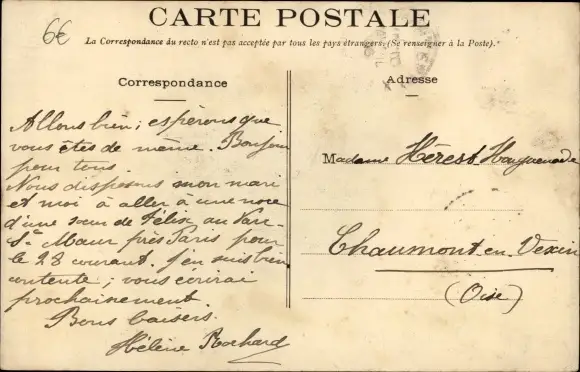 6€
CARTE POSTALE
La Correspondance du recto n'est pas acceptée par tous les pays étrangers. (Se renseigner à la Poste).
Correspondance
Allons bien; espérons que
vous êtes de même. Bonjour
pour tous.
Nous disposons mon mari
et moi à aller à une noce
d'une sœur de Félix au Parc
St Maur près Paris pour
le 28 courant. J'en suis bien
contente; vous écrirai
prochainement.
Bons baisers.
Hélène Rochard
Adresse
Madame Hérest
Chaumont-en-Vexin
(Oise)